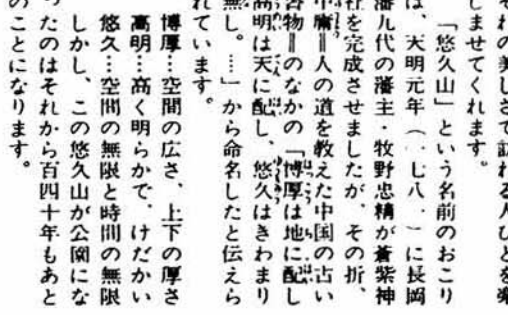 それの美しさで訪れる人びとを楽
しませてくれます。
「悠久山」という名前のおこり
は、天明元年(一七八一)に長岡
藩九代の藩主・牧野忠精が蒼紫神
社を完成させましたが、その折、
中庸=人の道を教えた中国の古い
書物=のなかの「博厚は地に配し
高明は天に配し、悠久はきわまり
無し。……」から命名したと伝えら
れています。
博厚…空間の広さ、上下の厚さ
高明…高く明らかで、けだかい
悠久…空間の無限と時間の無限
しかし、この悠久山が公園にな
ったのはそれから百四十年もあと
のことになります。